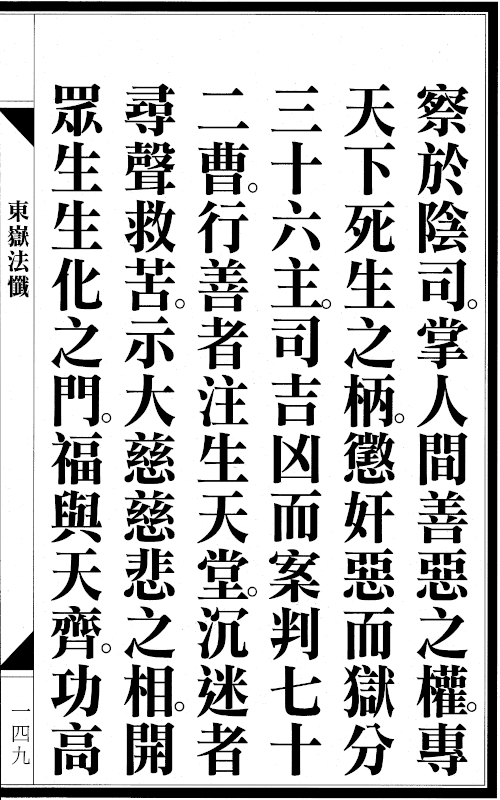 察於陰司。掌人間善惡之權。專
天下死生之柄。懲奸惡而獄分
三十六主。司吉凶而案判七十
二曹。行善者注生天堂。沉迷者
尋聲救苦。示大慈慈悲之相。開
眾生生化之門。福與天齊。功高
東嶽法懺
一四九